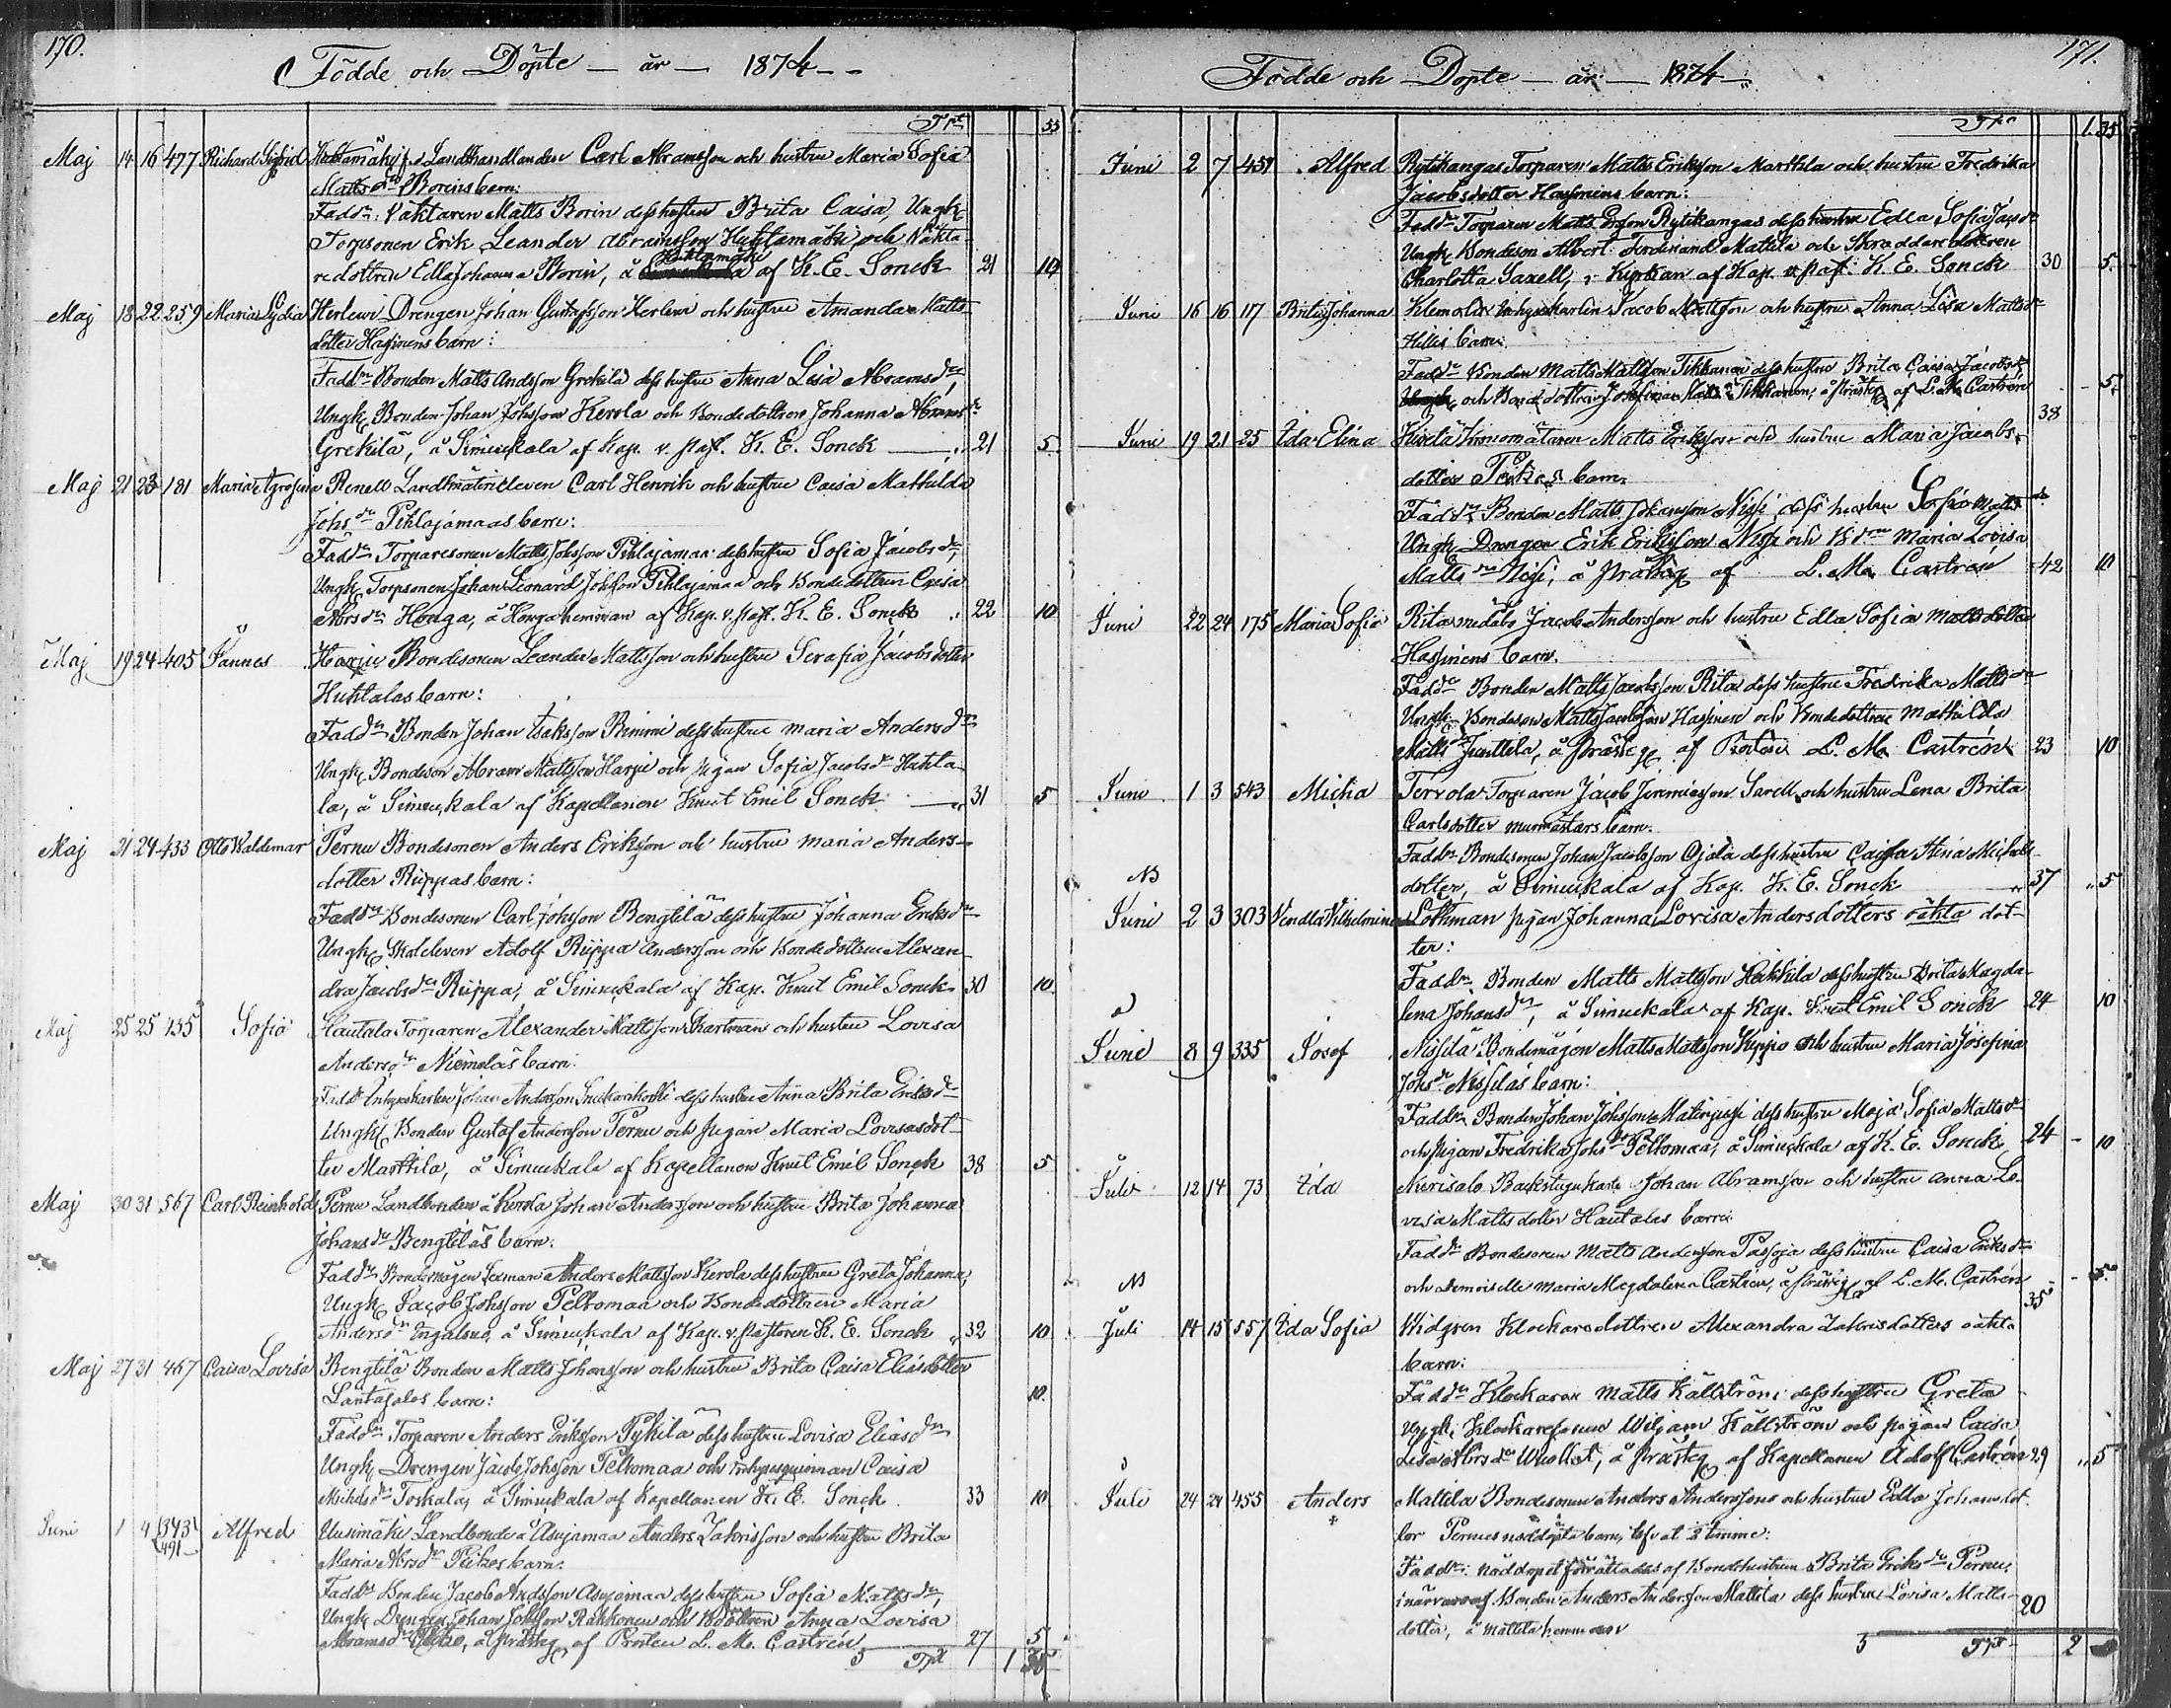 170.
Födde och Döpte — år — 1874 —
Trpt 55
Maj 14 16 477 Richard Sigfrid Huttamäki Landthandlanden Carl Abramsson och hustru Maria Sofia
Matts dr Borins barn:
Fadd: Väktaren Matts Borin dess hustru Brita Caisa, Ungk
Torpsonen Erik Leander Abramsson Huttamäki och Väkta-
redottren Edla Johanna Borin, å af K. E. Sonck 21 10
Maj 18 22 259 Maria Lydia Herlewi Drengen Johan Gustafsson Herlewi och hustru Amanda Matts
dotter Hassinens barn:
Fadd Bonden Matts Andsson Grekilä dess hustru Anna Lisa Abramsdr,
Ungk Bonden Johan Johsson Kerola och Bondedottren Johanna Abramsdr
Grekilä, å Simukkala af Kap. v. past. K. E. Sonck — 21 5
Maj 21 23 181 Maria Renell Landtmäterieleven Carl Henrik och hustru Caisa Mathilda
Johs dr Pihlajamaas barn:
Fadd Torparesonen Matts Johsson Pihlajamaa dess hustru Sofia Jacobs dr,
Ungk Torpsonen Johan Leonard Johsson Pihlajamaa och Bondedottren Caisa
Abrs dr Honga, å Honga hemman af Kap. v. past. K. E. Sonck 22 10
Maj 19 24 405 Jannes Harju Bondesonen Leander Mattsson och hustru Serafia Jacobsdotter
Huhtalas barn:
Fadd Bonden Johan Isaksson Rimmi dess hustru Maria Anders dr
Ungk Bondeson Abram Mattsson Harju och pigan Sofia Jacobs dr Huhta-
la, å Simukkala af Kapellanen Knut Emil Sonck — 31 5
Maj 21 24 433 Otto Waldemar Pernu Bondesonen Anders Eriksson och hustru Maria Anders-
dotter Ruppas barn:
Fadd Bondesonen Carl Johsson Bengtilä dess hustru Johanna Eriks dr
Ungk Skoleleven Adolf Ruppa Andersson och Bondedottren Alexan-
dra Jacobs dr Ruppa, å Simukkala af Kap. Knut Emil Sonck 30 10
Maj 25 25 135 Sofia Hautala Torparen Alexander Mattsson Hartman och hustru Lovisa
Anders dr Niemeläs barn:
Fadd Inhyseskarlen Johan Andersson dess hustru Anna Brita Eriks dr
Ungk Bonden Gustaf Andersson Pernu och Pigan Maria Lovisa Mattsdot-
ter Marttila, å Simukkala af Kapellanen Knut Emil Sonck 38 5
Maj 30 31 567 Carl Reinhold Pernu Landbonden å Kerola Johan Andersson och hustru Brita Johanna
Johans dr Bengtiläs barn:
Fadd Bondemågen Anders Mattsson Kerola dess hustru Greta Johanna,
Ungk Jacob Johsson Peltomaa och Bondedottren Maria
Anders dr Ingalsuo, å Simukkala af Kap. v. Pastoren K. E. Sonck 32 10
Maj 27 31 467 Caisa Lovisa Bengtilä Bonden Matts Johansson och hustru Brita Caisa Eliasdotter
Lantasalos barn: 10
Fadd Torparen Anders Eriksson Pyhilä dess hustru Lovisa Elias dr
Ungk Drengen Jacob Johsson Peltomaa och Inhysesqvinnan Caisa
Michels dr Toskala, å Simukkala af Kapellanen K. E. Sonck 33 10
Juni 1 4 393 491 Alfred Uusimäki Landbonde å Asujamaa Anders Zakrisson och hustru Brita
Maria Abrs dr Pitkos barn:
Fadd Bonden Jacob Andsson Asujamaa dess hustru Sofia Matts dr,
Ungk Drengen Johan Johsson Rahkonen och Bdottren Anna Lovisa
Abrams dr Pitko, å prästg af Prosten L. M. Castrén 27 5
5 Trpt 1 35
171.
Födde och Döpte — år — 1874 —
Trpt 1 35
Juni 2 7 451 Alfred Rytikangas Torparen Matts Eriksson Marttila och hustru Fredrika
Jacobsdotter Hassinens barn:
Fadd Torparen Matts Ersson Rytikangas dess hustru Edla Sofia Jacs dr
Ungk Bondeson Albert Ferdinand Mattila och Skräddaredottren
Charlotta Saxell, i Kyrkan af Kap. v. past. K. E. Sonck 30 5
Juni 16 16 117 Brita Johanna Klemola Inhyseskarlen Jacob Mattsson och hustru Anna Lisa Matts dr
Hillis barn:
Fadd Bonden Matts Mattsson Tikkanen dess hustru Brita Caisa Jacobs dr,
och Bondedottren Josefina Matts dr Tikkanen, å prästg af L. M. Castrén 38 5
Juni 19 21 25 Ida Elina Matts Eriksson och hustru Maria Jacobs-
dotter barn:
Fadd Bonden Matts Johansson Nissi, dess hustru Sofia Matts dr
Ungk Drengen Erik Eriksson Nissi och Bdrn Maria Lovisa
Matts dr Nissi, å prästg af L. M. Castrén 42 10
Juni 22 24 175 Maria Sofia Rita medåbo Jacob Andersson och hustru Edla Sofia Mattsdotter
Hassinens barn.
Fadd Bonden Matts Jacobsson Rita dess hustru Fredrika Matts dr
Ungk Bondeson Matts Jacobsson Hassinen och Bondedottren Mathilda
Matts dr Junttila, å prästg af Prosten L. M. Castrén 23 10
Juni 1 3 543 Micha Tervola Torparen Jacob Jeremiasson Saxell och hustru Lena Brita
Carlsdotter Murmästars barn.
Fadd Bondesonen Johan Jacobsson Ojala dess hustru Caisa Stina Michels
dotter, å Simukkala af Kap. K. E. Sonck 37 5
NB
Juni 2 3 303 Vendla Vilhelmina Löthman pigan Johanna Lovisa Andersdotters oäkta dot-
ter:
Fadd Bonden Matts Mattsson Hakkila dess hustru Brita Magda-
lena Johans dr, å Simukkala af Kap. Knut Emil Sonck 24 10
Juni 8 9 335 Josef Nissilä Bondemågen Matts Mattsson Kippo och hustru Maria Josefina
Johs dr Nissiläs barn:
Fadd Bonden Johan Johsson Matinjussi dess hustru Maja Sofia Matts dr
och pigan Fredrika Johs dr Peltomaa, å Simukkala af K. E. Sonck 24 10
Juli 12 14 73 Ida Niürisalo Backstugukarl Johan Abramsson och hustru Anna Lo-
visa Mattsdotter Hautalas barn:
Fadd Bondesonen Matts Andersson Pasoja dess hustru Caisa Eriks dr
och Demoiselle Maria Magdalena Castrén, å prästg af L. M. Castrén 35 5
NB
Juli 14 15 557 Ida Sofia Widgren Klockaredottren Alexandra Zakrisdotters oäkta
barn:
Fadd Klockaren Matts Källström dess hustru Greta
Ungk Klockaresonen Wiljam Källström och pigan Caisa
Lisa Abrs dr Wuollet, å prästg af Kapellanen Adolf Castrén 29 5
Juli 24 24 455 Anders Mattila Bondesonen Anders Anderssons och hustru Edla Johansdot
ter Pernus nöddöpta barn, lefvat 2 timme:
Fadd: nöddopet förrättades af Bondhustrun Brita Eriks dr Pernu,
i närvaro af Bonden Anders Andersson Mattila dess hustru Lovisa Matts-
dotter, å Mattila hemman 20
5 Trpt 2